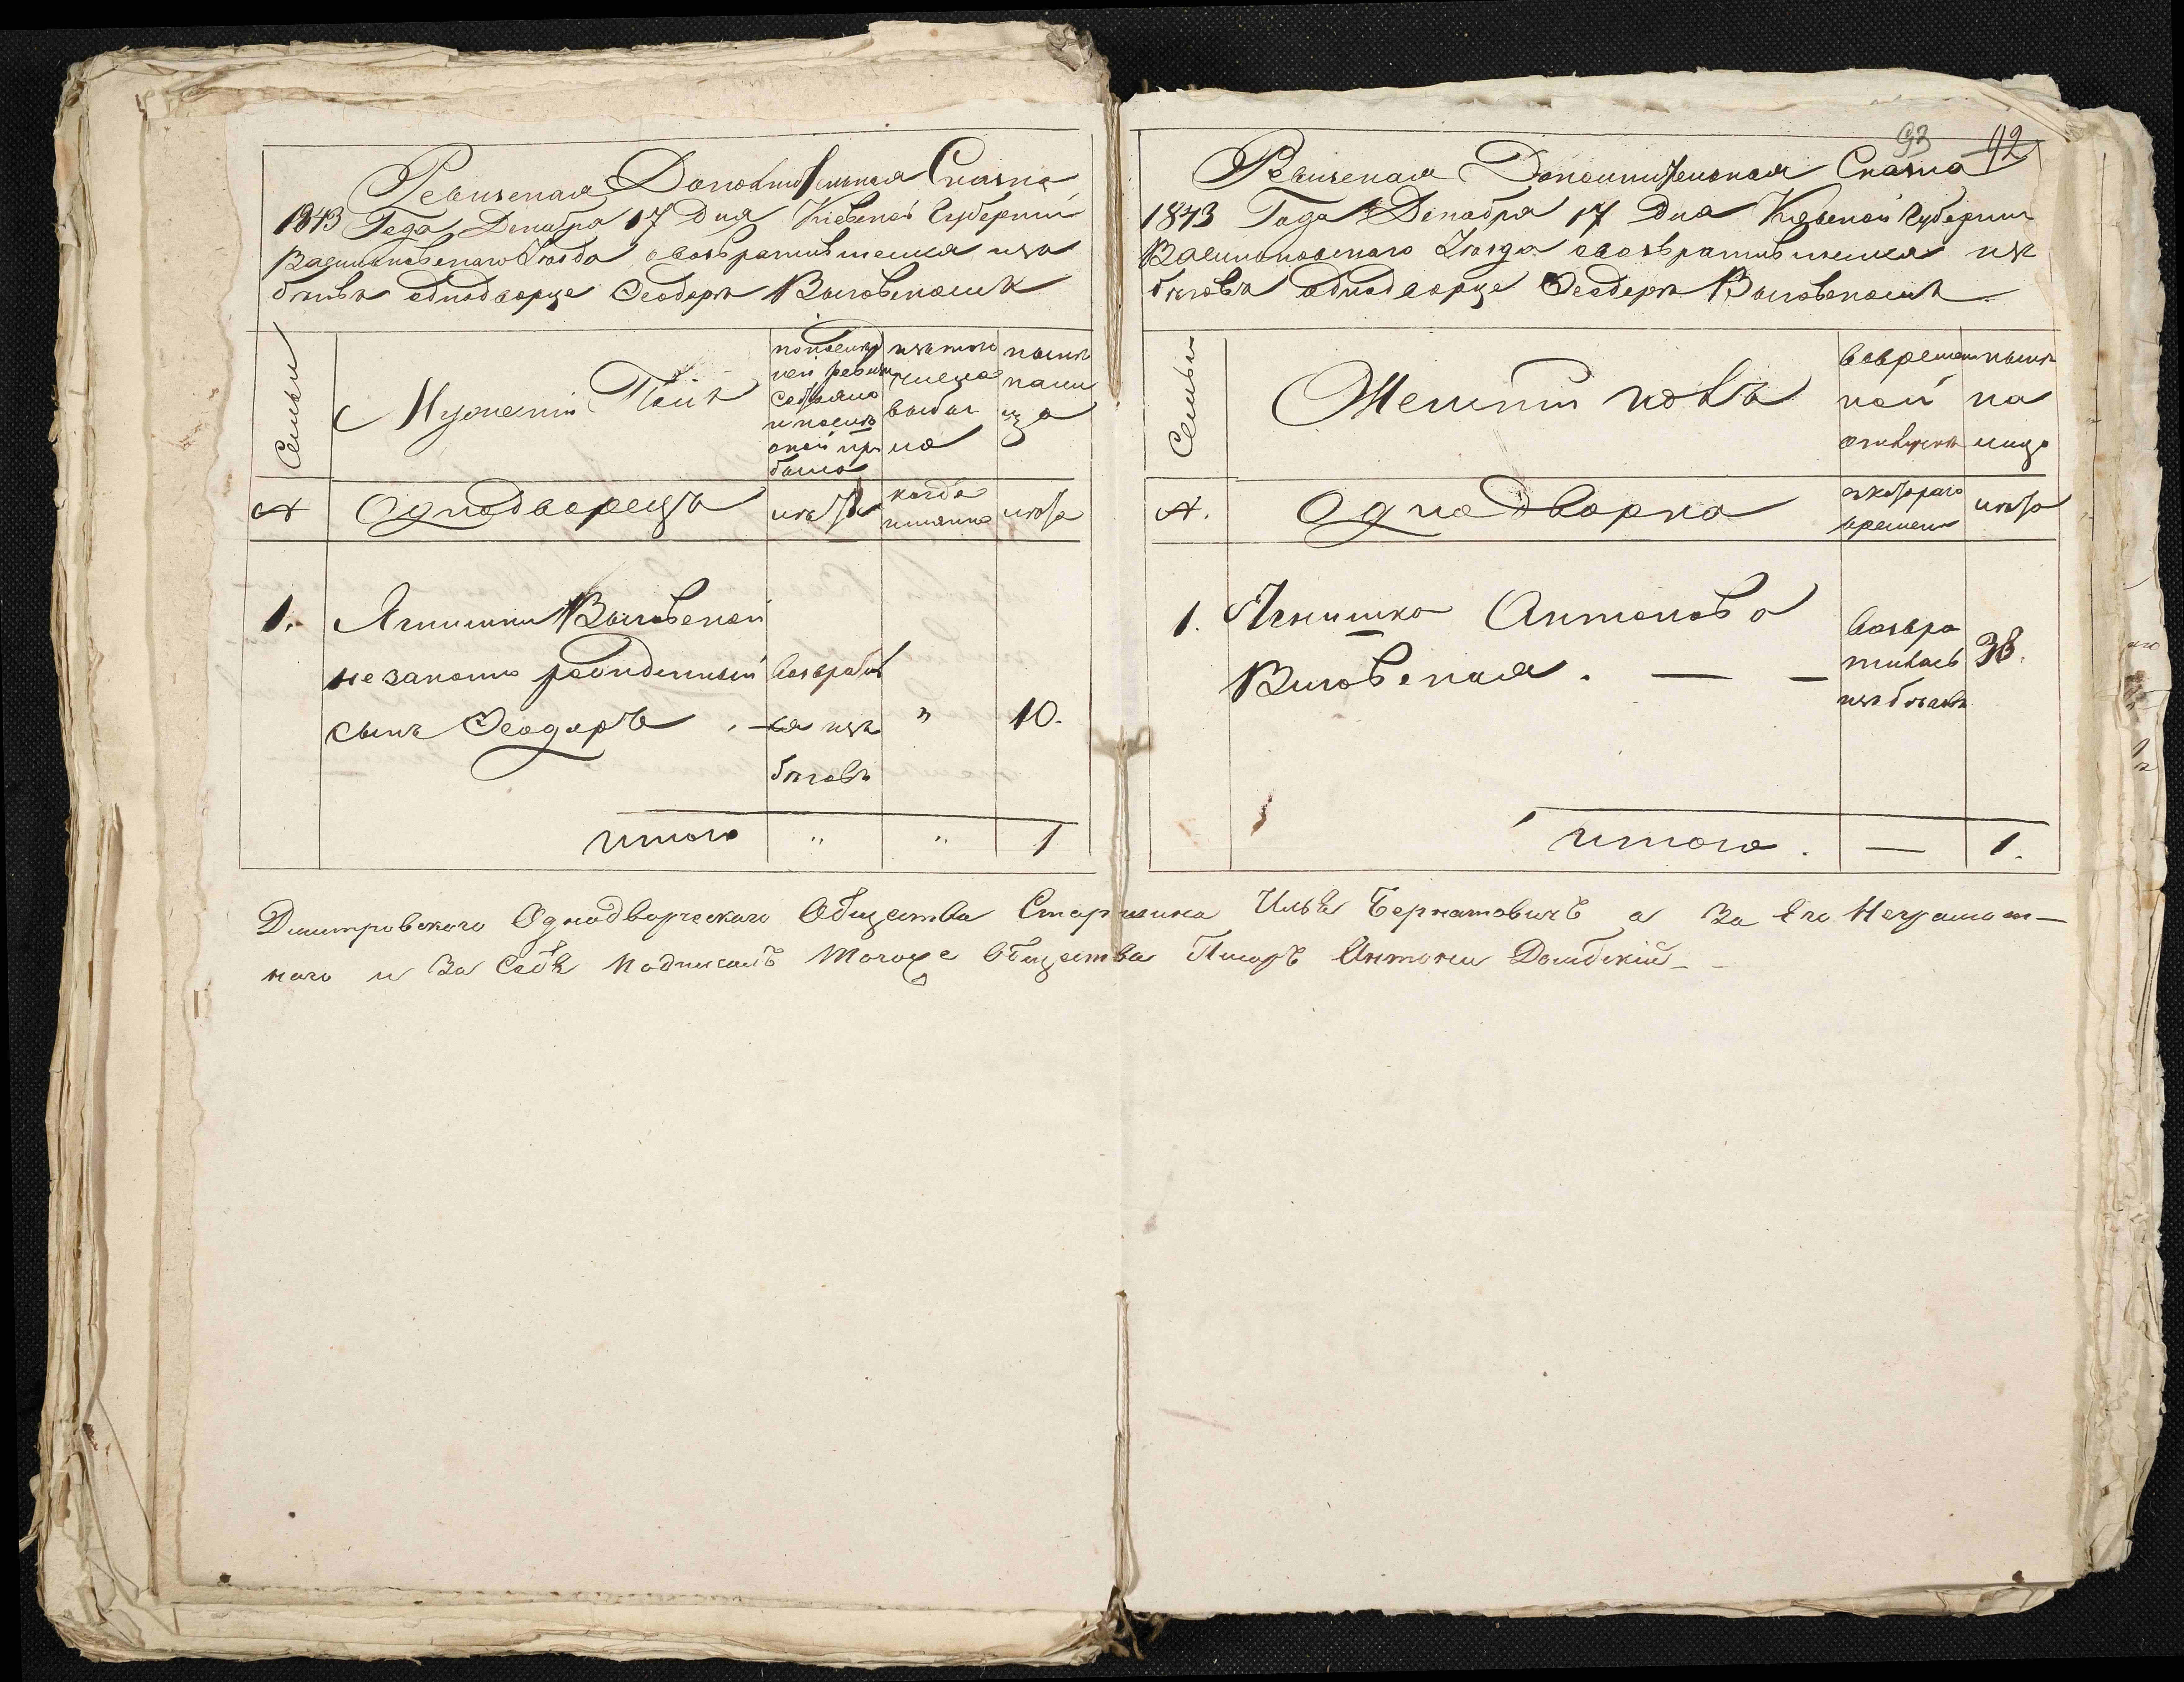 Ревизская Дополнительная Сказка
1843 Года Декабря 17 Дня Кіевской Губерніи
Васильковскаго Уезда овозвратившемся изъ
бѣговъ однодворце Ѳеодоръ Выговскомъ
Семьи
Мужеский Полъ
по последней ревизии состояло и после оной прибыло
изъ того числа выбыло
ныне на лицо
№
Однодворецъ
лѣта
когда имянно
лѣта
1.
Агнишки Выговской
незаконно рожденный
сынъ Ѳеодоръ
возвратился изъ бѣговъ
"
10.
Итого
"
"
1
93 92
Ревизская Дополнительная Сказка
1843 Года Декабря 17 Дня Кіевской Губерніи
Васильковскаго Уезда овозвратившемся изъ
бѣговъ однодворце Ѳеодоръ Выговскомъ
Семьи
Женскій полъ
вовременной отлучкѣ
ныне на лицо
№.
Однодворка
съ котораго времени
лѣта
1.
Агнишка Антонова
Выговская. — —
возвратилась изъ бѣговъ
38.
Итого.
—
1.
Дмитровского Однодворческаго Общества Старшина Илья Бернатовичъ а За Его Неграмот-
наго и За Себя Подписалъ Тогоже Общества Писарь Антони Домбскій